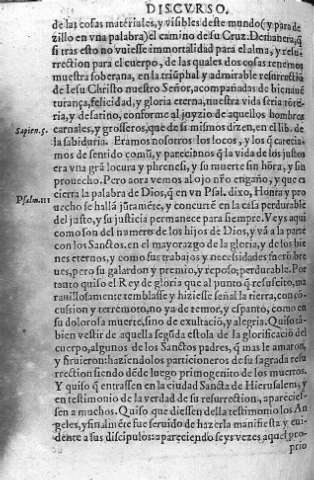 DISCVRSO.
de las cosas materiales, y visibles deste mundo (y para de
zillo en vna palabra) el camino de su Cruz. De manera, q̃
si tras esto no vuiesse immortalidad para el alma, y resu-
rrection para el cuerpo, de las quales dos cosas tenemos
muestra soberana, en la triũphal y admirable resurrectiõ
de Iesu Christo nuestro Señor, acompañadas de bienauẽ
turança, felicidad, y gloria eterna, nuestra vida seria
y desatino, conforme al joyzio de aquellos hombres
Sapien. 5.
carnales, y grosseros, que de si mismos dizen, en el lib. de
la sabiduria. Eramos nosotros los locos, y los q̃ carecia-
mos de sentido comũ, y pareciẽnos q̃ la vida de los justos
era vna grã locura y phrenesis, y su muerte sin hõra, y sin
prouecho. Pero aora vemos al ojo nr̃o engaño, y que es
cierta la palabra de Dios, q̃ en vn Psal. dixo, Honra y pro
Psalm. 111
uecho se hallã jũtamẽte, y concurrẽ en la casa perdurable
del justo, y su justicia permanece para siempre. Veys aqui
como son del numero de los hijos de Dios, y vã a la parte
con los Sanctos. en el mayorazgo de la gloria, y de los bie
nes eternos, y como sus trabajos y necesidades fuerõ bre
ues, pero su galardon y premio, y reposo, perdurable. Por
tanto quiso el Rey de gloria que al punto q̃ resuscito, ma
rauillosamente temblasse y hiziesse señal la tierra, con co-
cussion y terremoto, no ya de temor, y espanto, como en
su dolorosa muerte, sino de exultaciõ, y alegria. Quiso tã-
bien vestir de aquella segũda estola de la glorificaciõ del
cuerpo, algunos de los Sanctos padres, q̃ mas le amaron,
y siruieron: haziendolos particioneros de su sagrada resu
rrection siendo dẽde luego primogenito de los muertos.
Y quiso q̃ entrassen en la ciudad Sancta de Hierusalem, y
en testimonio de la verdad de su resurrection, apareciel-
sen a muchos. Quiso que diessen della testimonio los An
geles, y finalmẽte fue seruido de hazerla manifiesta y eui-
dente a sus discipulos: apareciendo seys vezes aquel pro-
prio